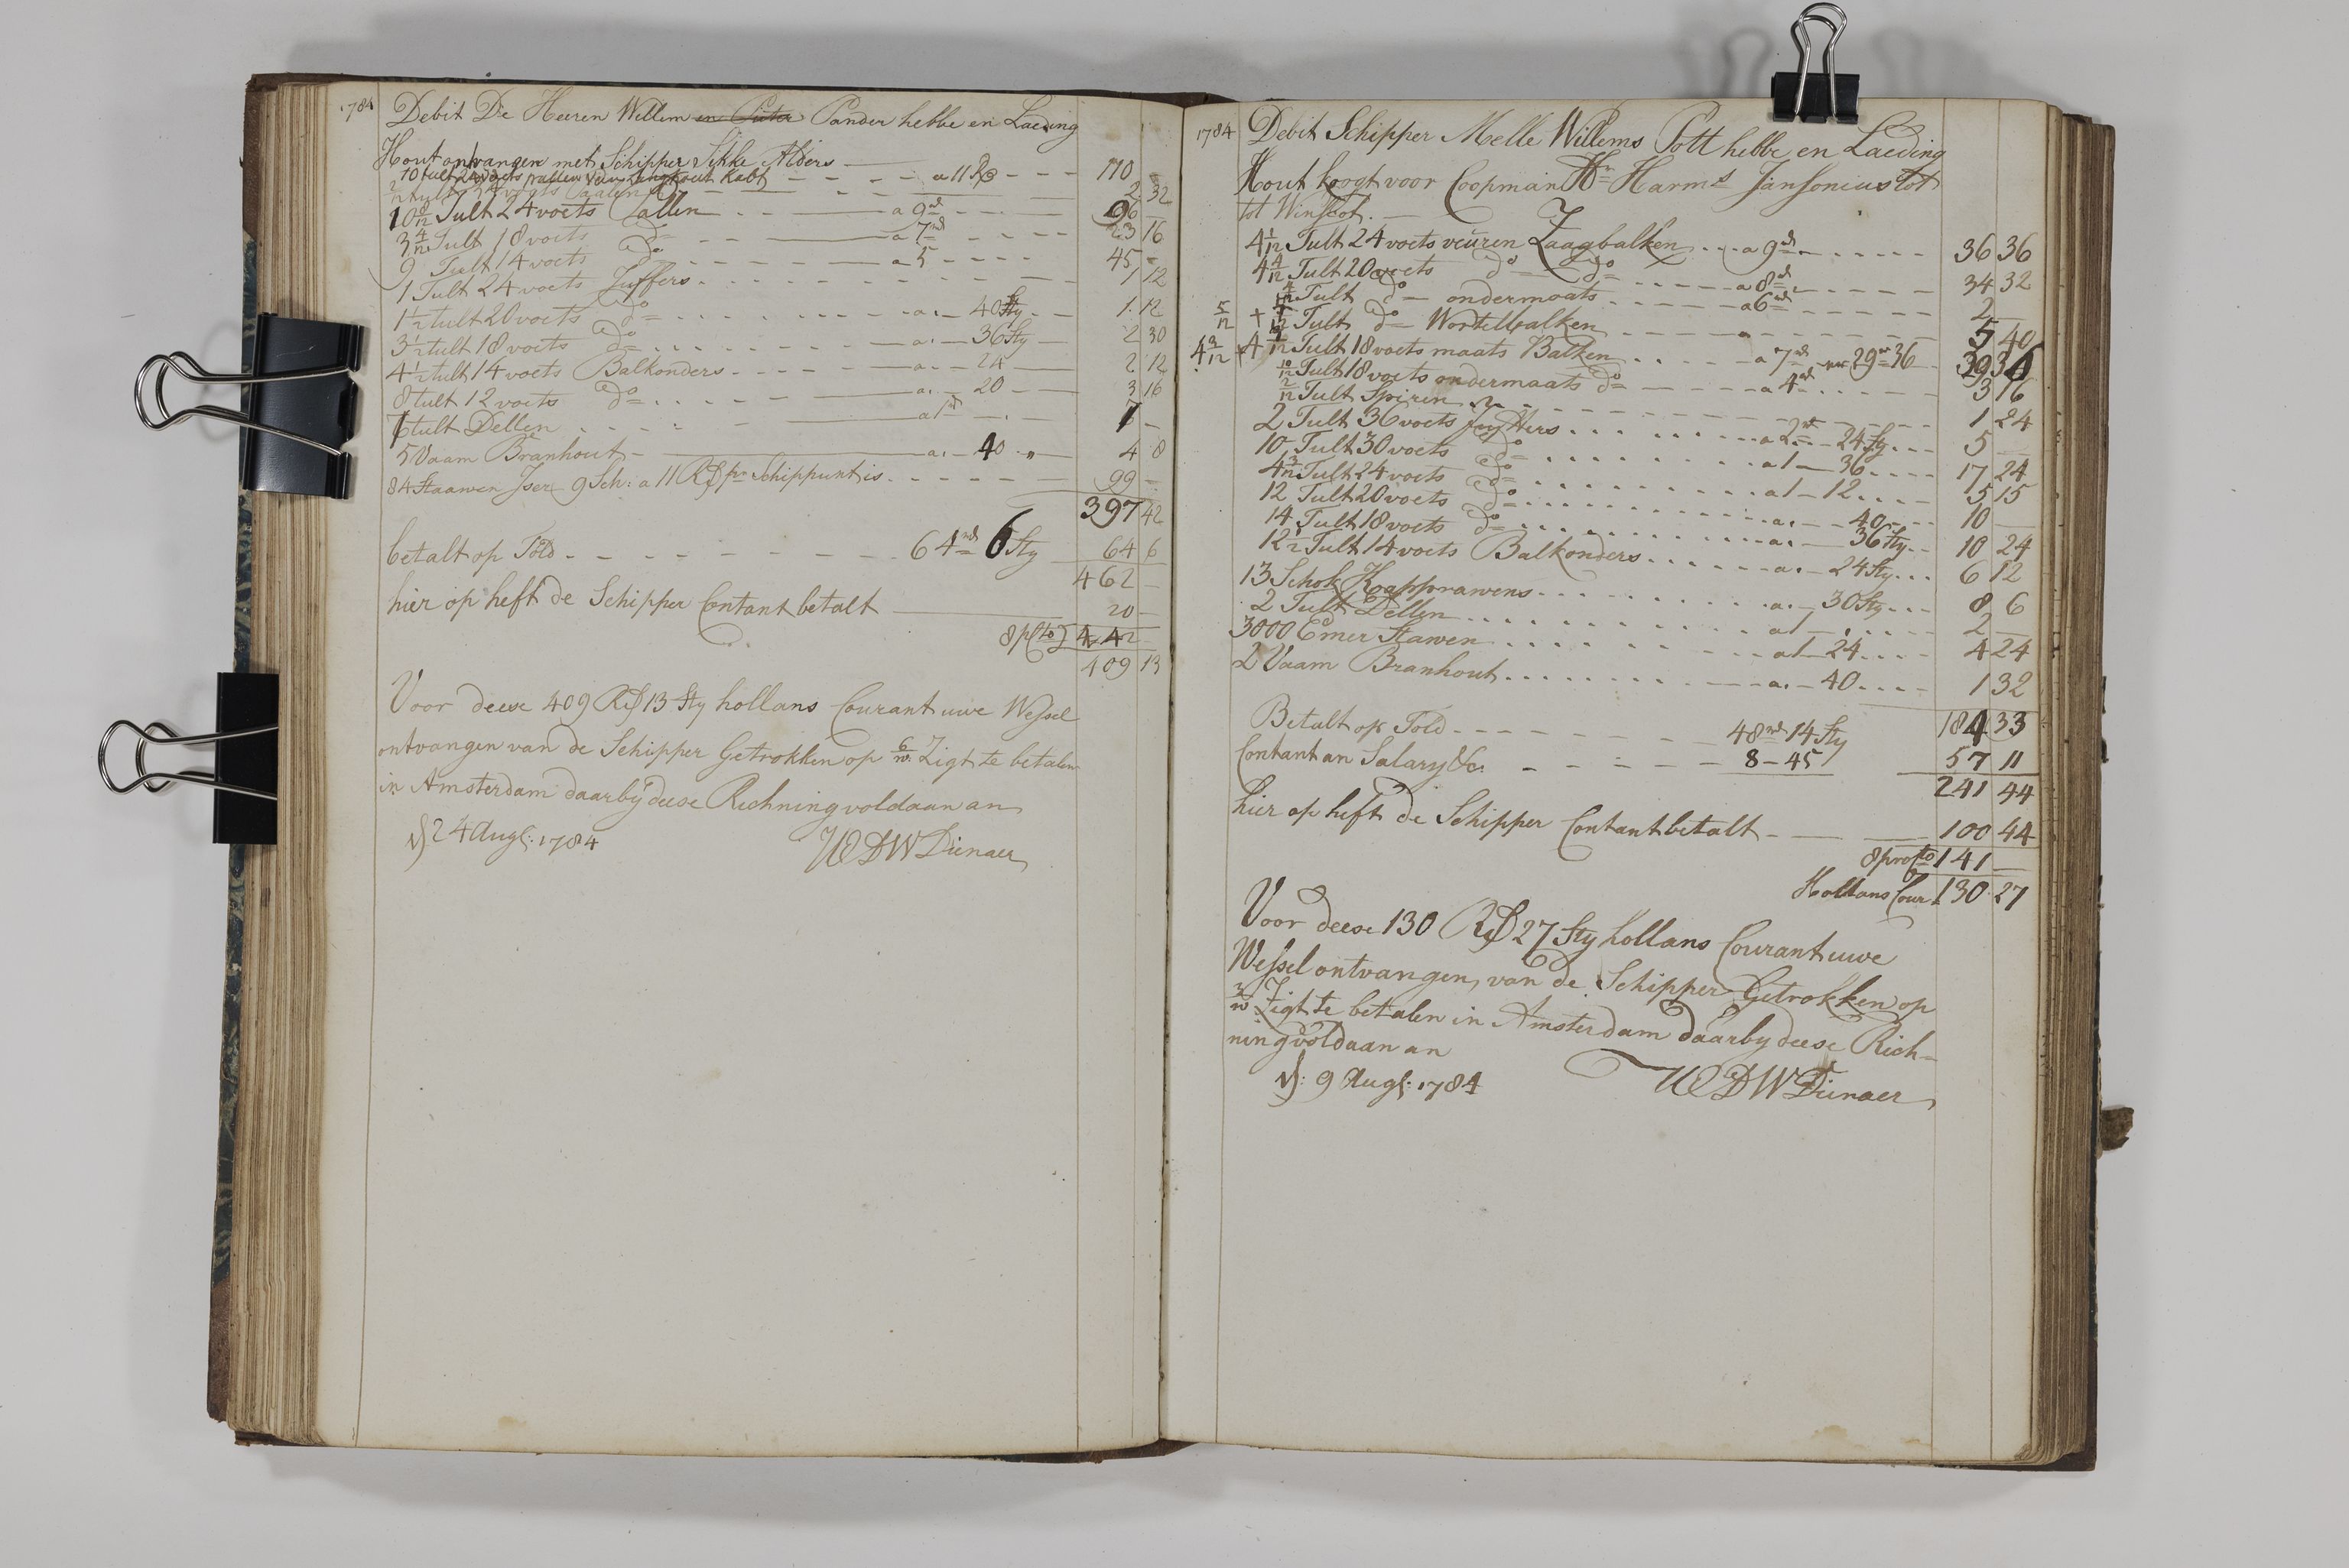 1784 Debit De Heeren Willem en Pieter Pander hebbe en Laeding
Hout ontvangen met Schipper Sikke Alders
10 tult 24 voets a 11 R 110 –
2/12 tult 2 32
10 8/12 Tult 24 voets Pallen a 9 rd 96 –
3 4/12 Tult 18 voets do a 7 rd 23 16
9 Tult 14 voets do a 5 45 –
1 Tult 24 voets Juffers 1 12
1 1/2 tult 20 voets do a – 40 Sty 1 12
3 1/2 tult 18 voets do a – 36 Sty 2 30
4 1/2 tult 14 voets Balkonders a – 24 2 12
8 tult 12 voets do a – 20 3 16
tult Dellen a 1 rd –
5 Vaam Branhout a – 40 „ 4 8
84 Staawen Iser 9 Sch: a 11 Rd pr Schippunt is 99 –
397 42
betalt op Told 64 rd 6 Sty 64 6
462 –
hier op heft de Schipper Contant betalt 20 –
8 p Cto 442 –
409 13
Voor deese 409 Rd 13 Sty hollans Courant uwe Wessel
ontvangen van de Schipper Getrokken op 6/w Zigt te betalen
in Amsterdam daarby deese Richning voldaan an
d 24 Augs: 1784 WDW Dienaer
1784 Debit Schipper Melle Willems Pott hebbe en Laeding
Hout koogt voor Coopman Hr Harms Jansonius tot
tot Winschot.
4 1/12 Tult 24 voets veuren Zaagbalken a 9 rd 36 36
4 4/12 Tult 20 voets do do a 8 rd 34 32
4/12 Tult do ondermaats a 6 rd 2 –
5/12 + Tult do Wortelbalken 5 40
4 3/12 + 4 Tult 18 voets maats Balken a 7 rd 29 rd 36 39 36
10/12 Tult 18 voets ondermaats do a 4 rd 3 16
2/12 Tult Spiren 1 24
2 Tult 36 voets Juffers a 2 rd 24 Sty 5 –
10 Tult 30 voets do a 1 – 36 17 24
4 3/12 Tult 24 voets do a 1 – 12 5 15
12 Tult 20 voets do a – 40 10 –
14 Tult 18 voets do a – 36 Sty 10 24
12 1/2 Tult 14 voets Balkonders a – 24 Sty 6 12
13 Schok Kapprawens a – 30 Sty 8 6
2 Tult Dellen a 1 – 2 –
3000 Emer Stawen a 1 – 24 4 24
2 Vaam Branhout a – 40 1 32
184 33
Betalt op Told 48 rd 14 Sty
Contant an Salary &c. 8 – 45 57 11
241 44
hier op heft de Schipper Contant betalt 100 44
8 pro Cto 141 –
Hollans Cour 130 27
Voor deese 130 Rd 27 Sty hollans Courant uwe
Wessel ontvangen, van de Schipper Getrokken op
3/w Zigt te betalen in Amsterdam daarby deese Rich=
ning voldaan an
d: 9 Augs: 1784 WDW Dienaer